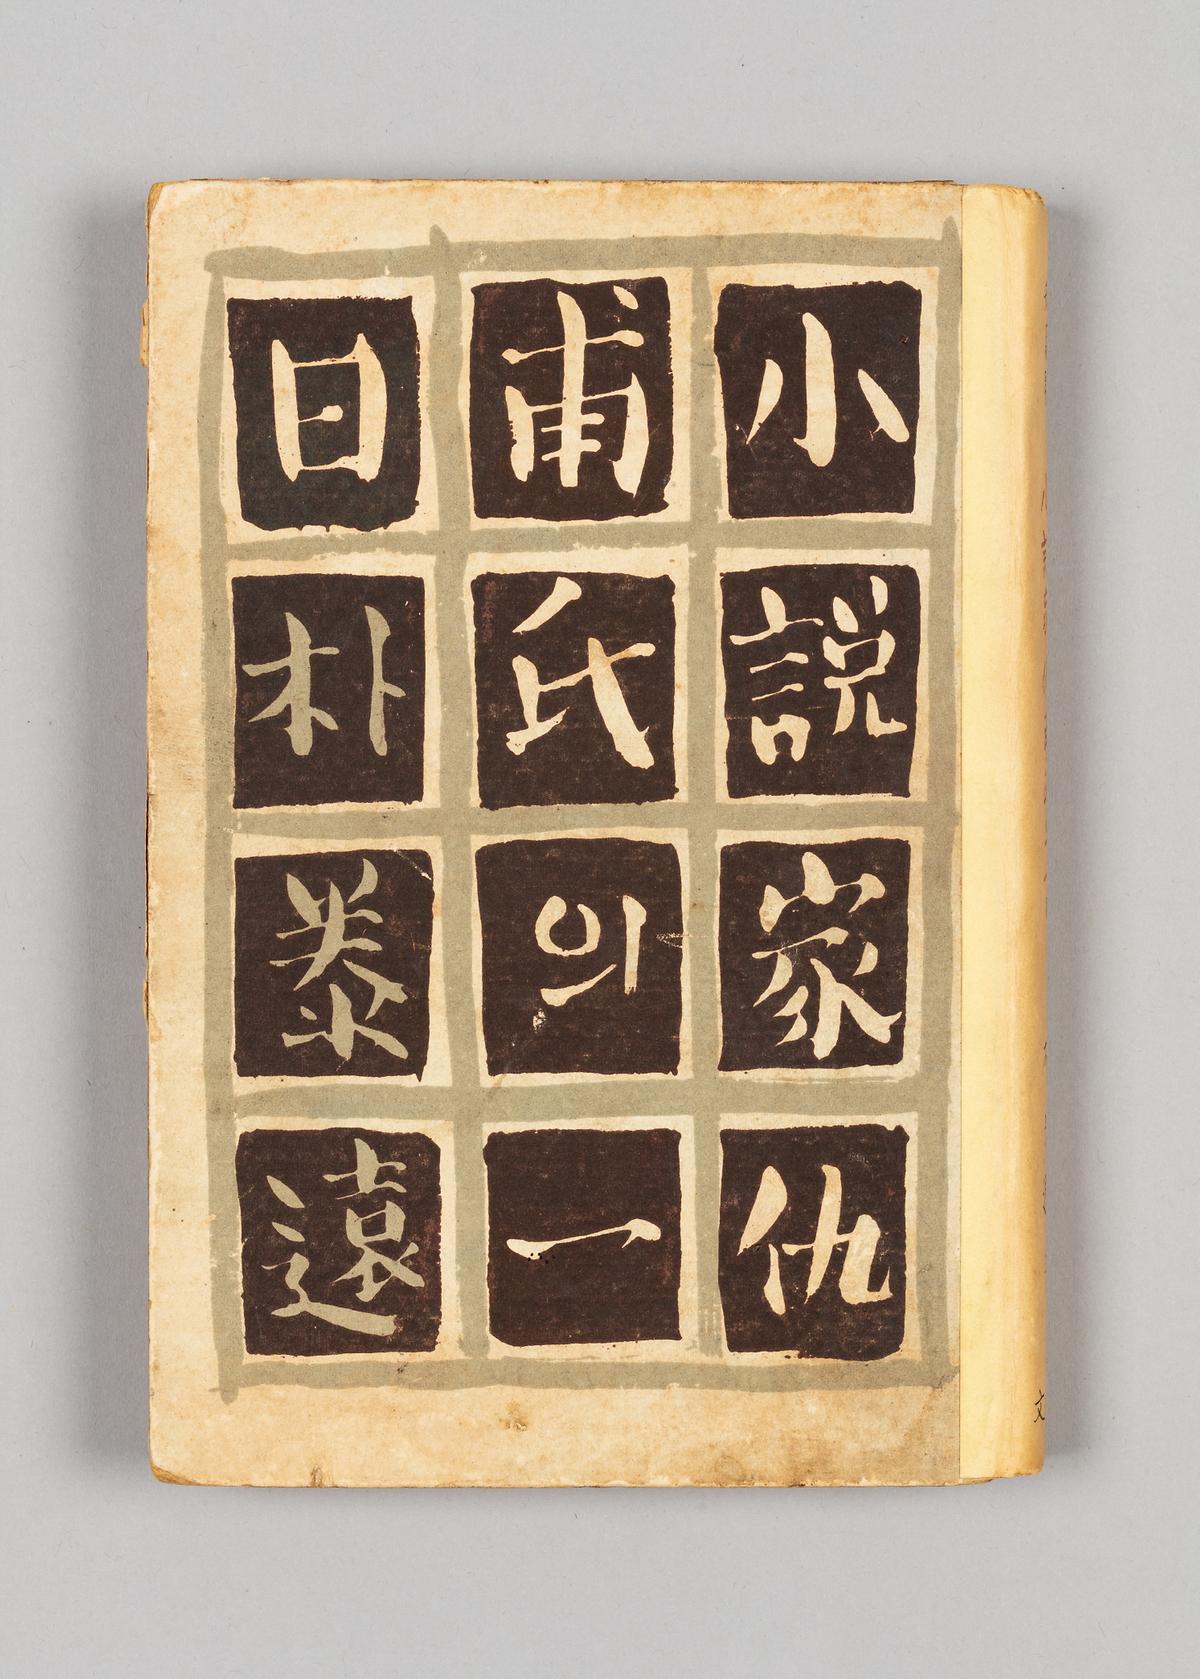 小說家仇
甫氏의一
日朴
泰遠
文